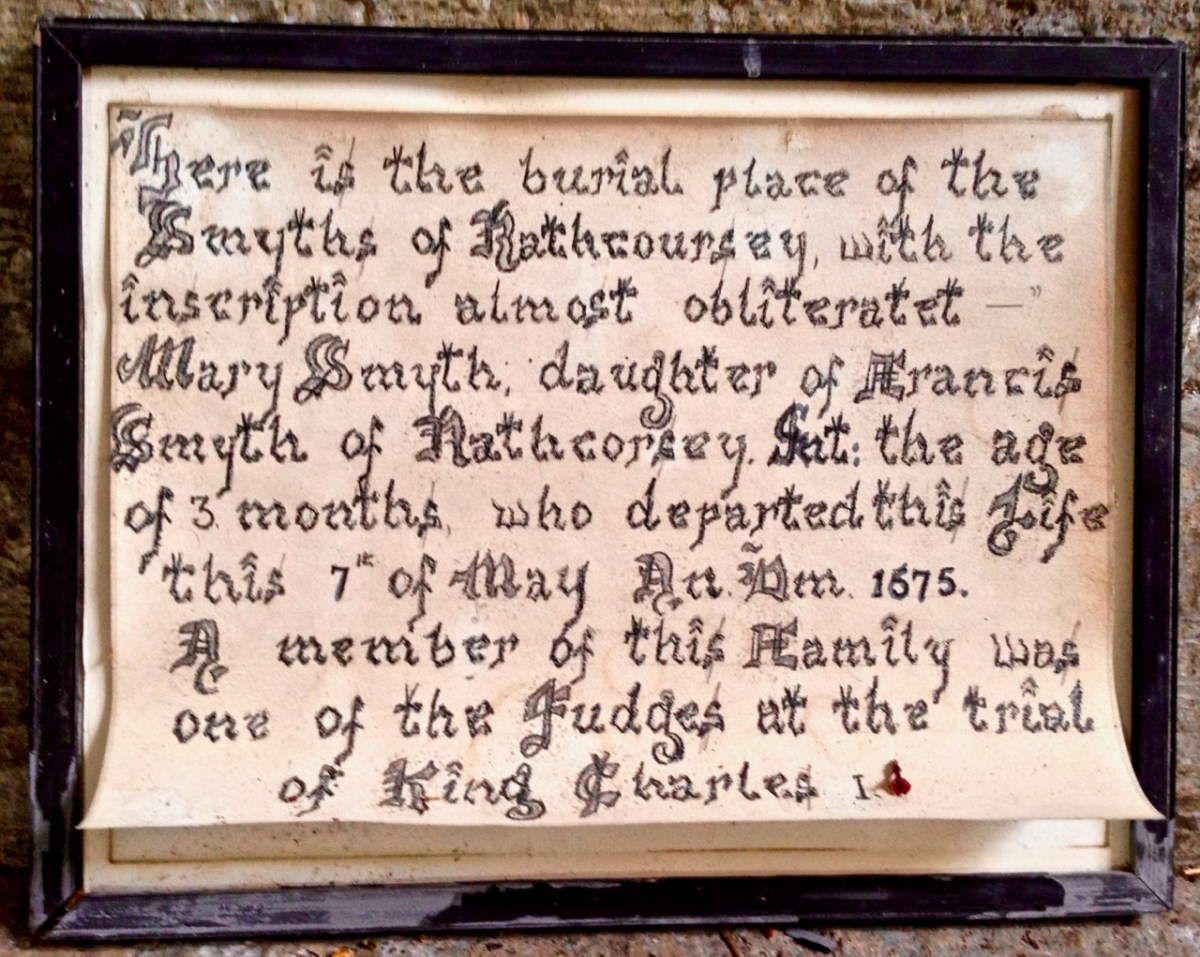 Here is the burial place of the
Smyths of Rathcoursey, with the
inscription almost obliteratet —"
Mary Smyth, daughter of Francis
Smyth of Rathcorsey. Sut: the age
of 3 months, who departed this Life
this 7th of May An. Dm. 1675.
A member of this Family was
one of the Judges at the trial
of King Charles I.